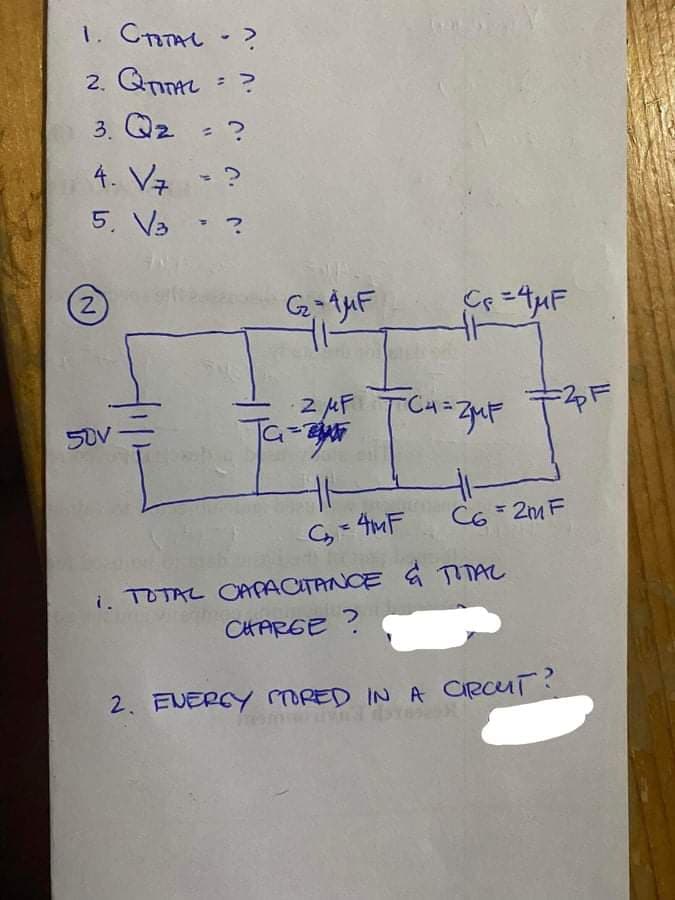 1. CTOTAL - ?
2. QTOTAL = ?
3. Q2 = ?
4. V7 = ?
5. V3 = ?
2
C2 = 4μF
C5 = 4μF
50V
2 μF
C1 =
C4 = 2μF
2pF
C3 = 4mF
C6 = 2mF
1. TOTAL CAPACITANCE & TOTAL
CHARGE ?
2. ENERGY STORED IN A CIRCUIT ?